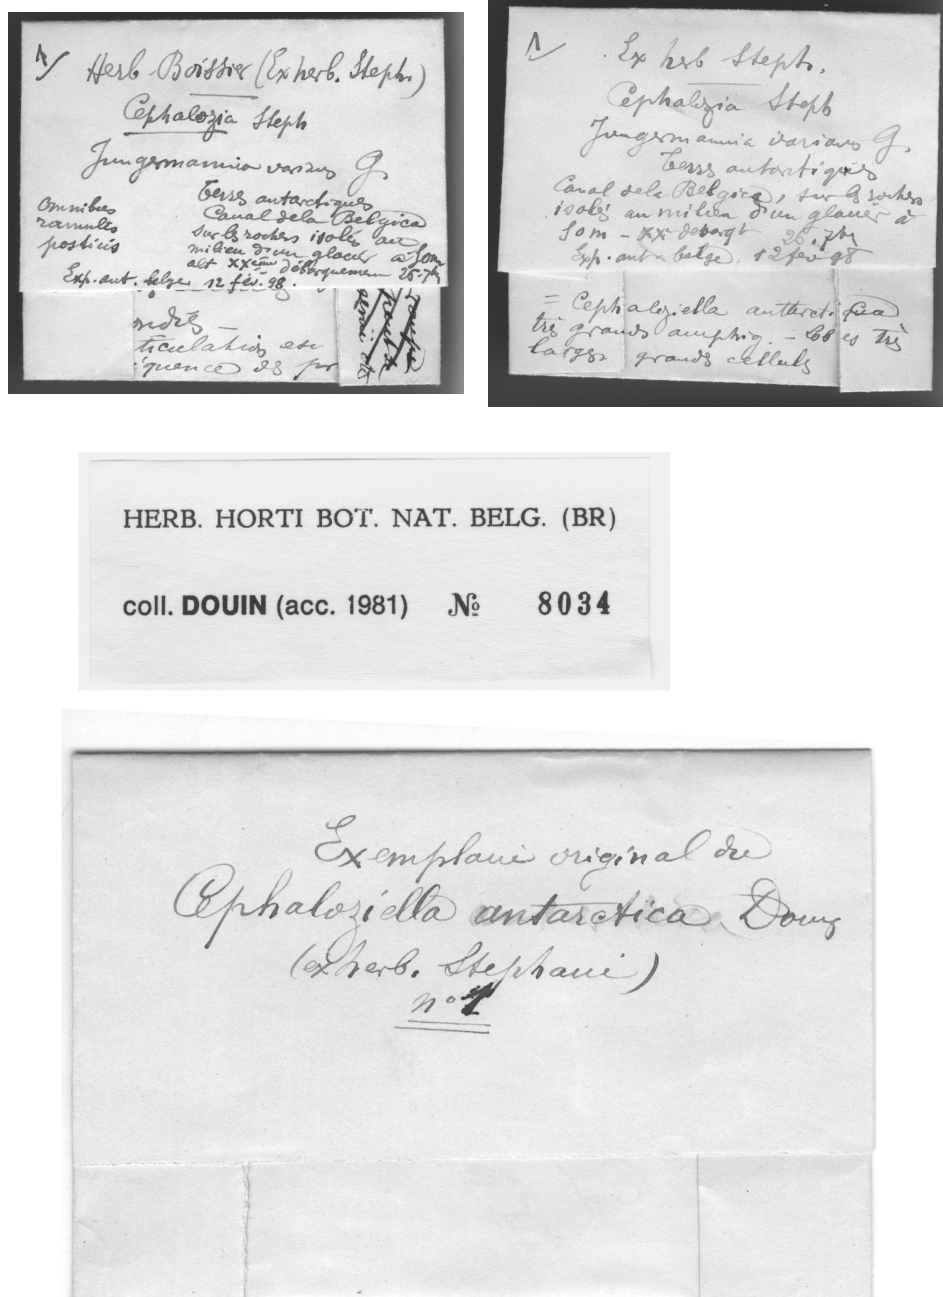 1/ Herb. Boissier (Ex herb. Steph.)
Cephalozia Steph
Jungermannia varians G.
Terres antarctiques
Canal de la Belgica
sur les rochers isolés au
milieu d'un glacier à 50m
alt XXème débarquement
Exp. ant. belge 12 fév. 98.
omnibus
ramulis
posticis
ticulation
1/ Ex herb Steph.
Cephalozia Steph
Jungermannia varians G.
Terres antarctiques
Canal de la Belgica, sur les rochers
isolés au milieu d'un glacier à
50m - XX debarqt
Exp. ant. belge. 12 fev 98
= Cephaloziella antarctica
très grands amphig. - très
larges grands cellules
HERB. HORTI BOT. NAT. BELG. (BR)
coll. DOUIN (acc. 1981) № 8034
Exemplaire original du
Cephaloziella antarctica Douin
(ex herb. Stephani)
n° 1